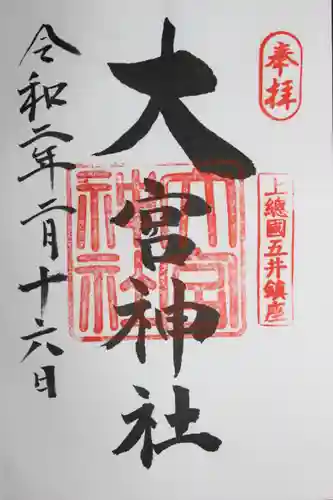 奉拝
上總國五井鎮座
大宮神社
令和二年二月十六日